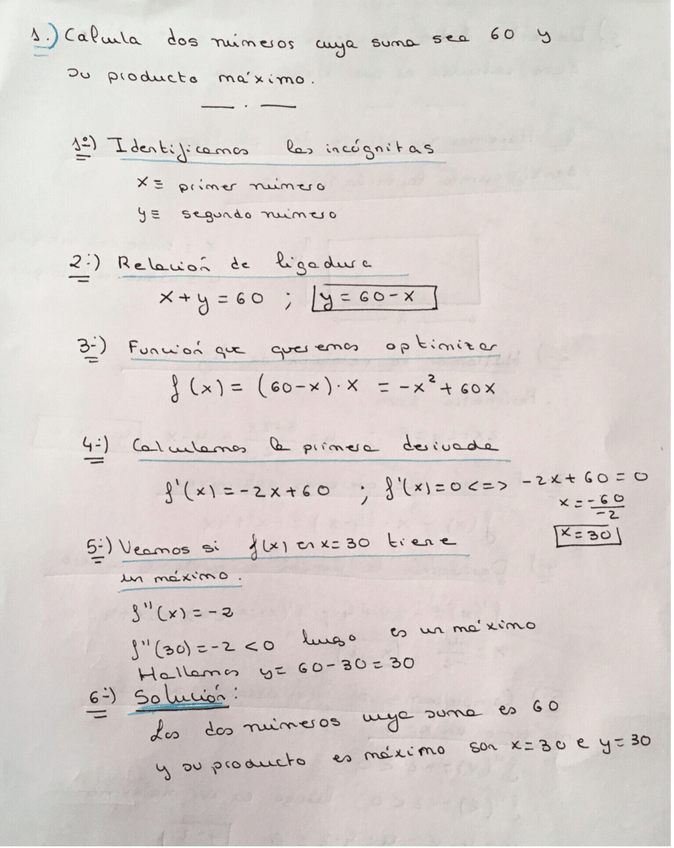 1.) Calcula dos números cuya suma sea 60 y
su producto máximo.
1º) Identificamos las incógnitas
x≡ primer número
y≡ segundo número
2º) Relación de ligadura
x+y=60 ; y=60-x
3º) Función que queremos optimizar
f(x) = (60-x)·x = -x²+60x
4º) Calculamos la primera derivada
f'(x)=-2x+60 ; f'(x)=0<=> -2x+60=0
x=-60/-2
x=30
5º) Veamos si f(x) en x=30 tiene
un máximo.
f''(x)=-2
f''(30)=-2<0 luego es un máximo
Hallamos y=60-30=30
6º) Solución:
Los dos números cuya suma es 60
y su producto es máximo son x=30 e y=30